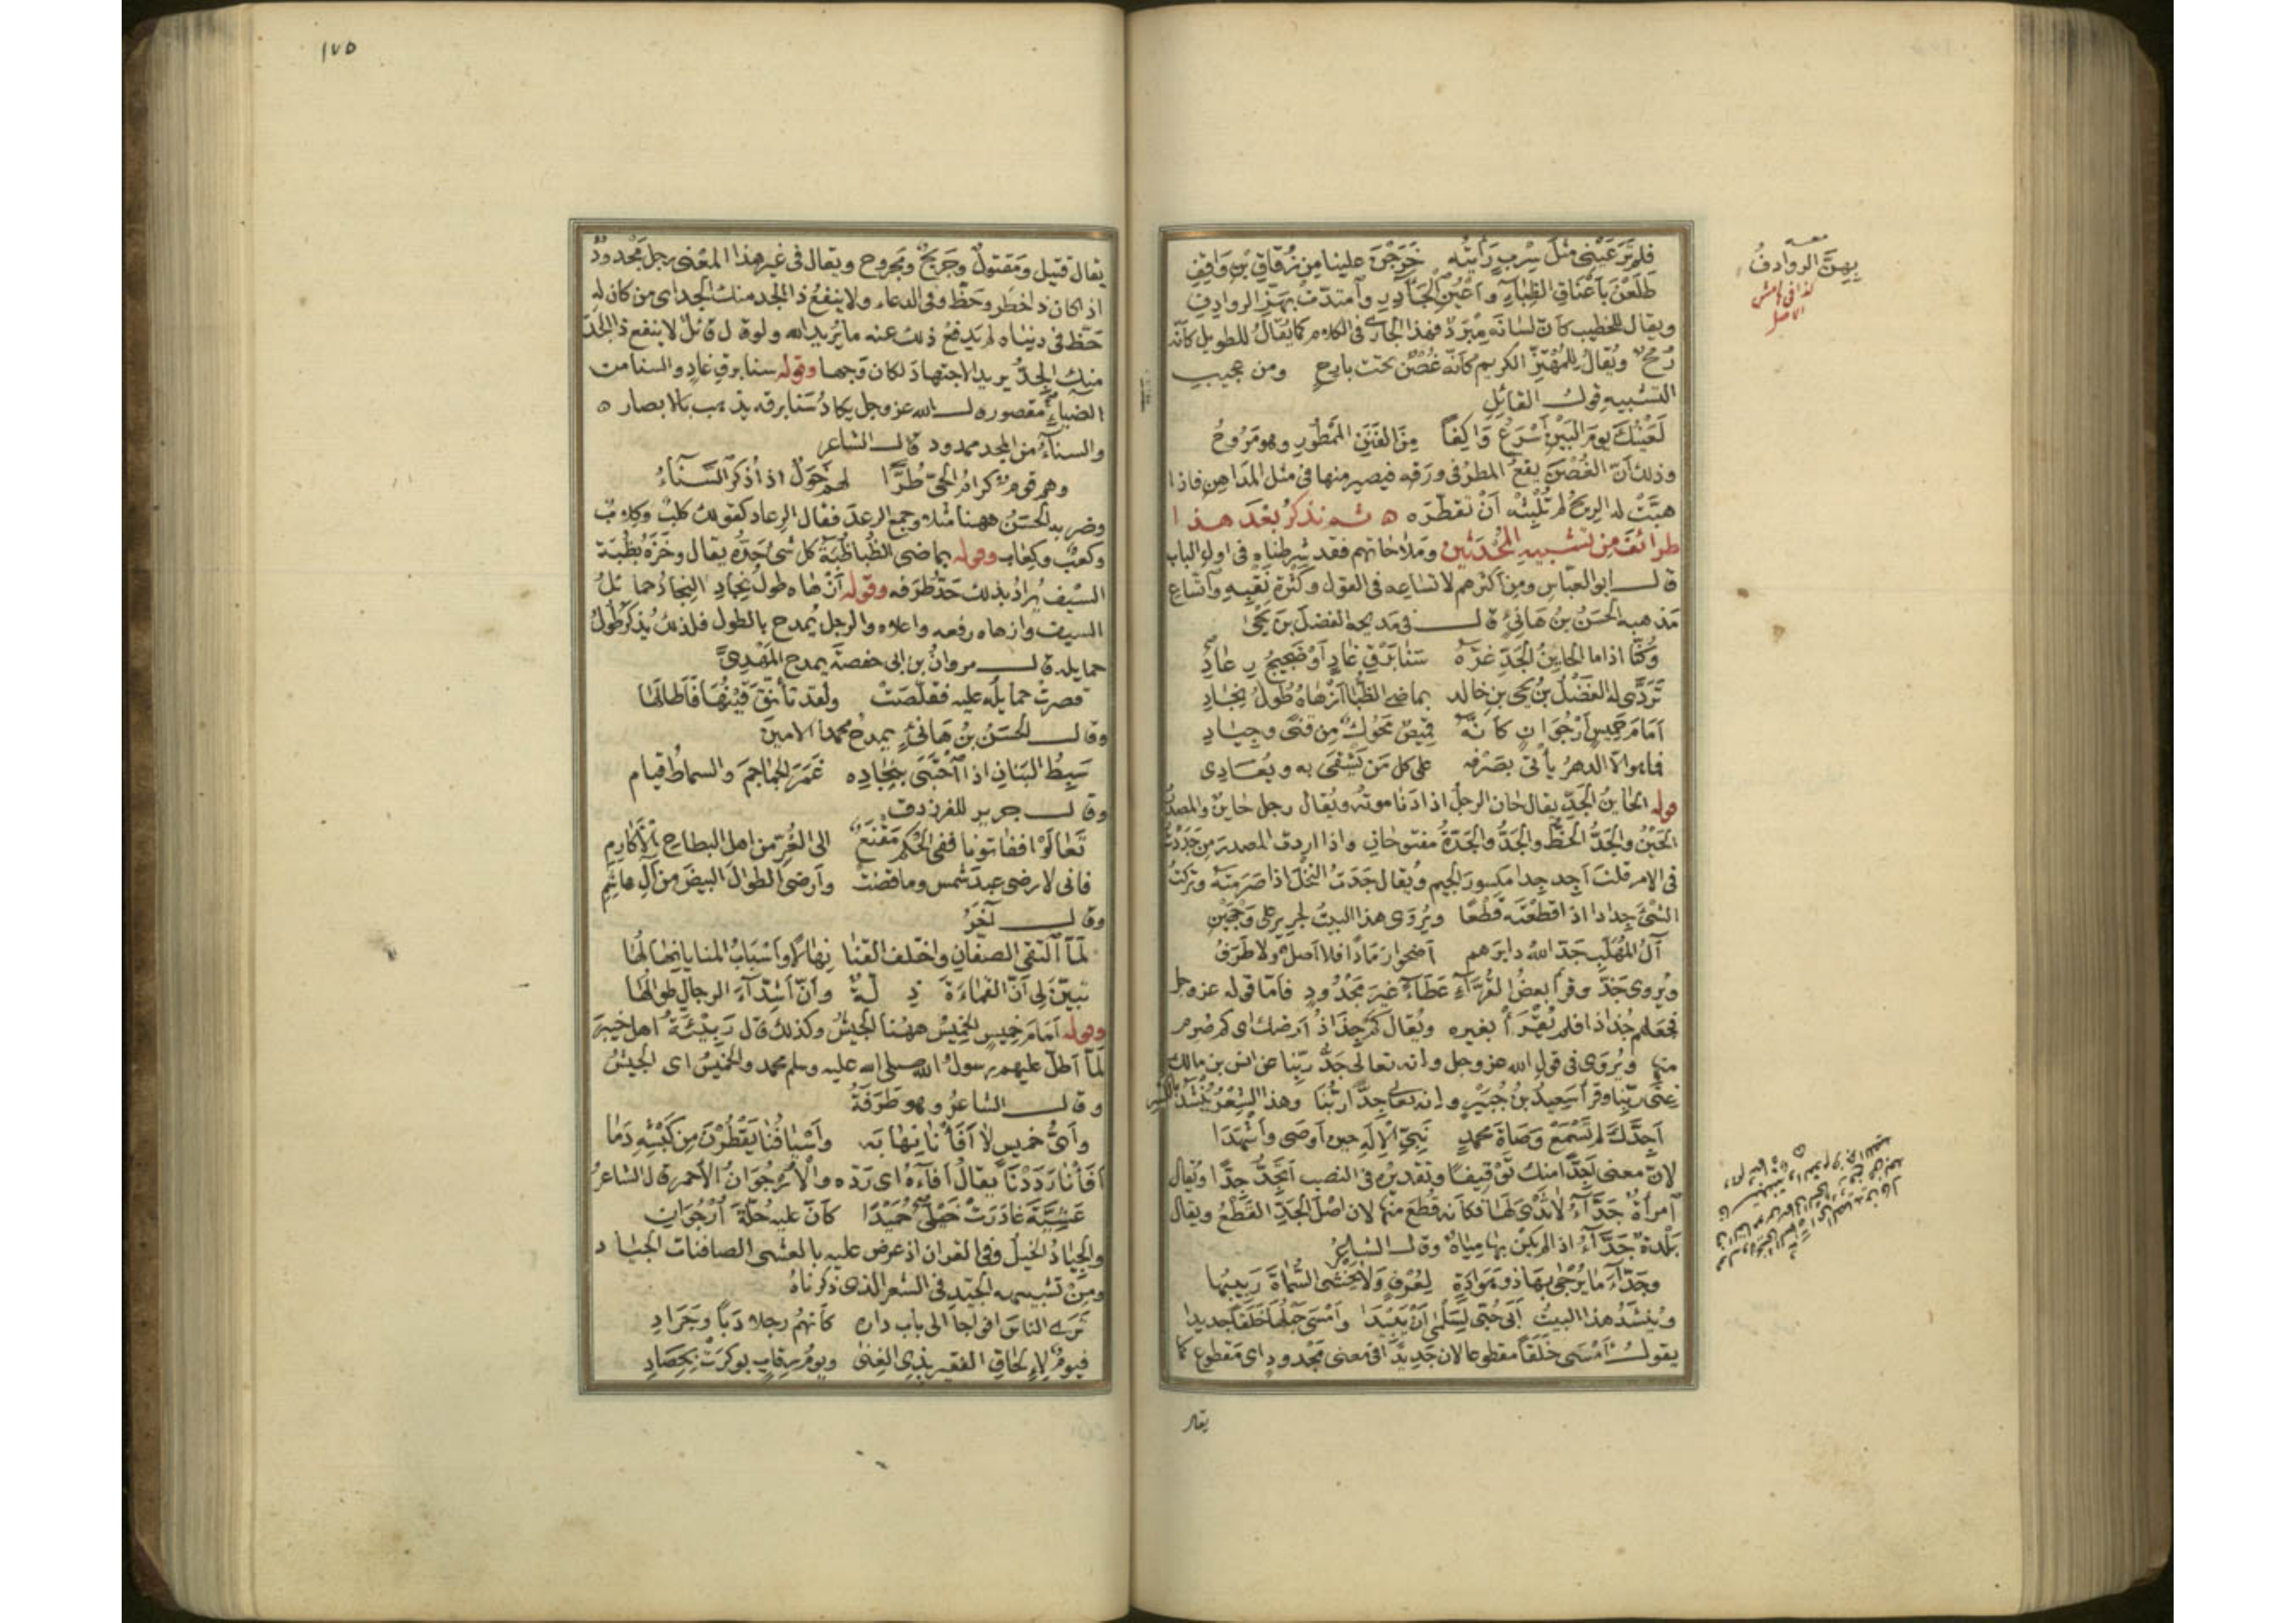 فلم تَرَ عَيْني مثلَ سِربٍ رَأيتُه خَرَجْنَ علينا مِن زُقاقِ بنِ وَاقِفِ
طَلَعْنَ بأعْنَاقِ الظِّبَاءِ وأعْيُنِ الجَآذِرِ وامتدّتْ بهَنّ الروادِفِ
ويقال للخطيب كأنّ لسَانَه مِبْرَدٌ فهذا الجارى فى الكلام كما يُقَالُ للطويل كأنّه
رُمْحٌ ويُقالُ لِلمُهْتَزّ الكريم كأنّه غُصْنٌ تحت بارحٍ ومن عجيبِ
التشبيه قولـ القائلِ
لَعَيْنُكَ يومَ البَيْنِ أسْرَعُ وَاكِفاً مِنَ الفَنَنِ المَمْطُورِ وهو مَرُوحُ
وذلك أنّ الغُصْنَ يقعُ المطرُ فى ورَقِه فيصير منها فى مثل المدَاهِن فاذا
هبَّتْ له الريحُ لم تُلْبِثْه أنْ تقطّرَه ثم نذكرُ بَعْدَ هذا
طرائفَ مِن تشبيهِ المُحْدَثِينَ وملاحاتهم فقد شرطناه فى اول الباب
قال ابو العبّاس ومِن أكثرهم لاتساعه فى القول وكثرةِ تفَنّنِه واتّساعِ
مَذهبه الحَسَنُ بنُ هَانِئ قال فى مَديحه الفضلَ بن يَحْيَى
وكُنّا اذا ما الحاينُ الجَدّ غرّهُ سَنَا بَرْقِ غاوٍ أوْ ضَجِيجُ رِعادِ
تَرَدَّى له الفَضْلُ بنُ يحيى بنِ خالدٍ بماضى الظُّبا أزْهاهُ طُولُ نِجادِ
أمَامَ خَميسٍ أرْجُوَانٍ كأنّهُ قَمِيصٌ مَحُوكٌ مِن قَنًى وجِيادِ
فما هو الّا الدهرُ يأتى بصَرْفِه على كلّ مَن يَشْقَى به ويُعَادِى
قوله الحَاينُ الجَدِّ يقال حَان الرجلُ اذا دَنا موتُه ويُقال رجل حاينٌ والمصدرُ
الحَيْنُ والجَدُّ الحَظُّ والجَدُّ والجَدّةُ مفتوحانِ واذا اردتَ المصدرَ مِن جَدَدْتُ
فى الامر قلتَ أجِدّ جِدا مكسورَ الجيم ويُقال جَدَدتُ النخلَ اذا صَرَمتَه وتركتُ
الشىءَ جِذاذا اذا قطّعْتَه قِطَعًا ويُرْوَى هذا البيتُ لجرير على وَجْهَيْنِ
آلُ المُهَلَّبِ جَدَّ اللهُ دابِرَهم أضحَوا رَمَاداً فلا أصلٌ ولا طَرَفُ
ويُروى جَذَّ وقرأ بعضُ القُرّاءِ عَطَاءً غيرَ مَجْدُودٍ فأمّا قوله عزوجل
فجعلهم جُذاذا فلم يُقرَأْ بغيره ويُقال كم جِذَاذُ أرضك اى كم صُرِم
منها ويُرْوَى فى قول الله عز وجل وانه تعالَى جَدُّ ربِّنا عن انس بن مالك
غِنَى ربِّنا وقرأ سَعِيدُ بنُ جُبَيْرٍ وانه تعالى جِدًّا رَبُّنَا وهذا الشعرُ يُنْشَدُ بالكسر
أجِدَّكَ لم تَسْمَعْ وَصَاةَ محمّدٍ نَبِىِّ الإلهِ حين أوصَى وأشْهَدَا
لانّ معنى أجِدًّا منك تَوْقيفًا وتقديرُه فى النصب أتَجِدُّ جِدًّا ويُقال
امرأةٌ جَدّآءُ لا ثَدْىَ لها فكأنه قُطِعَ منها لان اصْلَ الجَدّ القَطْعُ ويقال
بَلْدةٌ جَدّآءُ اذا لم يكنْ بها مِياهٌ وقال الشاعرُ
وجَدّآءَ ما يُرْجَى بهَا ذو هَوَادةٍ لعُرْفٍ ولا يَخْشَى السُّماةَ رَبِيبُها
ويُنشَدُ هذا البيتُ أبَى حُبّى لسَلْمَى أنْ يَبِيدَا وأمْسَى حَبْلُها خَلَقًا جديدا
يقولـ أمْسَى خَلَقًا مقطوعا لان جَديدًا فى معنى مَجْدودٍ اى مَقطوع كما
يقال
بهنّ الروادفُ
كذا فى هامش
الاصل
١٧٥
يقال قتيل ومَقتولٌ وجَرِيحٌ ومَجروح ويقال فى غير هذا المعنى رجل مَجْدودٌ
اذا كان ذا خطَرٍ وحَظٍّ وفى الدعاء ولا ينفعُ ذا الجَد منك الجَد اى من كان له
حَظّ فى دنياه لم يَدفعْ ذلك عنه ما يُريد الله ولو قال قائلٌ لا ينفع ذا الجِدّ
منك الجِدُّ يريد الاجتهادَ لكان وَجها وقوله سنا برق غاوٍ والسنا من
الضياءِ مقصور قال الله عز وجل يكادُ سَنا برقه يذهب بالابصار
والسناءُ من المجد ممدود قالـ الشاعر
وهم قومٌ كرامُ الحَىّ طُرًّا لهم خَوَلٌ اذا ذُكرَ السَّناءُ
وضربه الحَسَنُ ههنا مثلا وجمع الرعدَ فقال الرِعاد كقولك كلبٌ وكِلابٌ
وكَعبٌ وكِعاب وقوله بماضى الظُّبا ظُبَةُ كل شىءٍ حَدّهُ يقال وخَزَهُ بظُبَة
السيْف يُرادُ بذلك حَدّ طَرَفه وقوله أزْهاه طولُ نِجادِ النِجادُ حمائلُ
السيف وازهاه رفعه واعلاه والرجل يُمدح بالطول فلذلك يُذكَرُ طُولُ
حمايله قالـ مروانُ بن ابى حفصةَ يمدح المَهْدِىَّ
قصرتْ حمايلُه عليه فقلّصَتْ ولقد تأنّقَ قَيْنُهَا فأطالَهَا
وقالـ الحَسَنُ بنُ هَانِئٍ يمدحُ محمدا الامينَ
سَبِطُ البَنانِ اذا احْتَبَى بنِجادِه غَمَرَ الجماجِمَ والسماطُ قيام
وقالـ جرير للفرزدق
تَعَالَوْا ففاتونا ففى الحُكم مَقْنَعٌ الى الغُرّ من اهل البِطاحِ الأكارِمِ
فانى لارضى عبدَ شمس وما قضَتْ وأرضى الطوالَ البيضَ من آلِ هاشِمِ
وقالـ آخَرُ
لمّا التقى الصفّانِ واختلف القَنا نِهَالًا وأسْبَابُ المنايا نِهَالُهَا
تبيّنَ لى أنّ القماءَةَ ذِلّةٌ وأنّ أشدّآءَ الرجال طِوالُهَا
وقوله أمَامَ خميسٍ الخميسُ ههنا الجيْشُ وكذلك قال رَبِيئَةُ اهل خَيبَر
لمّا أطلّ عليهم رسولُ الله صلى الله عليه وسلم محمد والخميسُ اى الجيْشُ
وقالـ الشاعرُ وهو طَرَفَةُ
وأىُّ خميسٍ لا أفَأْنا نِهَابَه وأسْيافُنا يَقْطُرْنَ مِن كَبْشِه دَمَا
أفأْنا رَدَدْنَا يقالُ أفآءَهُ اى رَدّه والأُرْجُوَانُ الأحمر قال الشاعرُ
عَشِيّةَ غادَرَتْ خَيْلى حُمَيْدًا كأنّ عليه حُلّةَ أُرْجُوَانِ
والجِيادُ الخيلُ وفى القران اذ عُرض عليه بالعشى الصافنات الجياد
ومِنْ تشبيهه الجَيّدِ فى الشعر الذى ذكرناهُ
تَرَى الناسَ افواجًا الى باب دارِه كأنّهُم رِجلَا دَبًا وجَرَادِ
فيومٌ لإلحاقِ الفقير بذى الغِنَى ويومُ رِقابٍ بوكِرَتْ بحَصَادِ